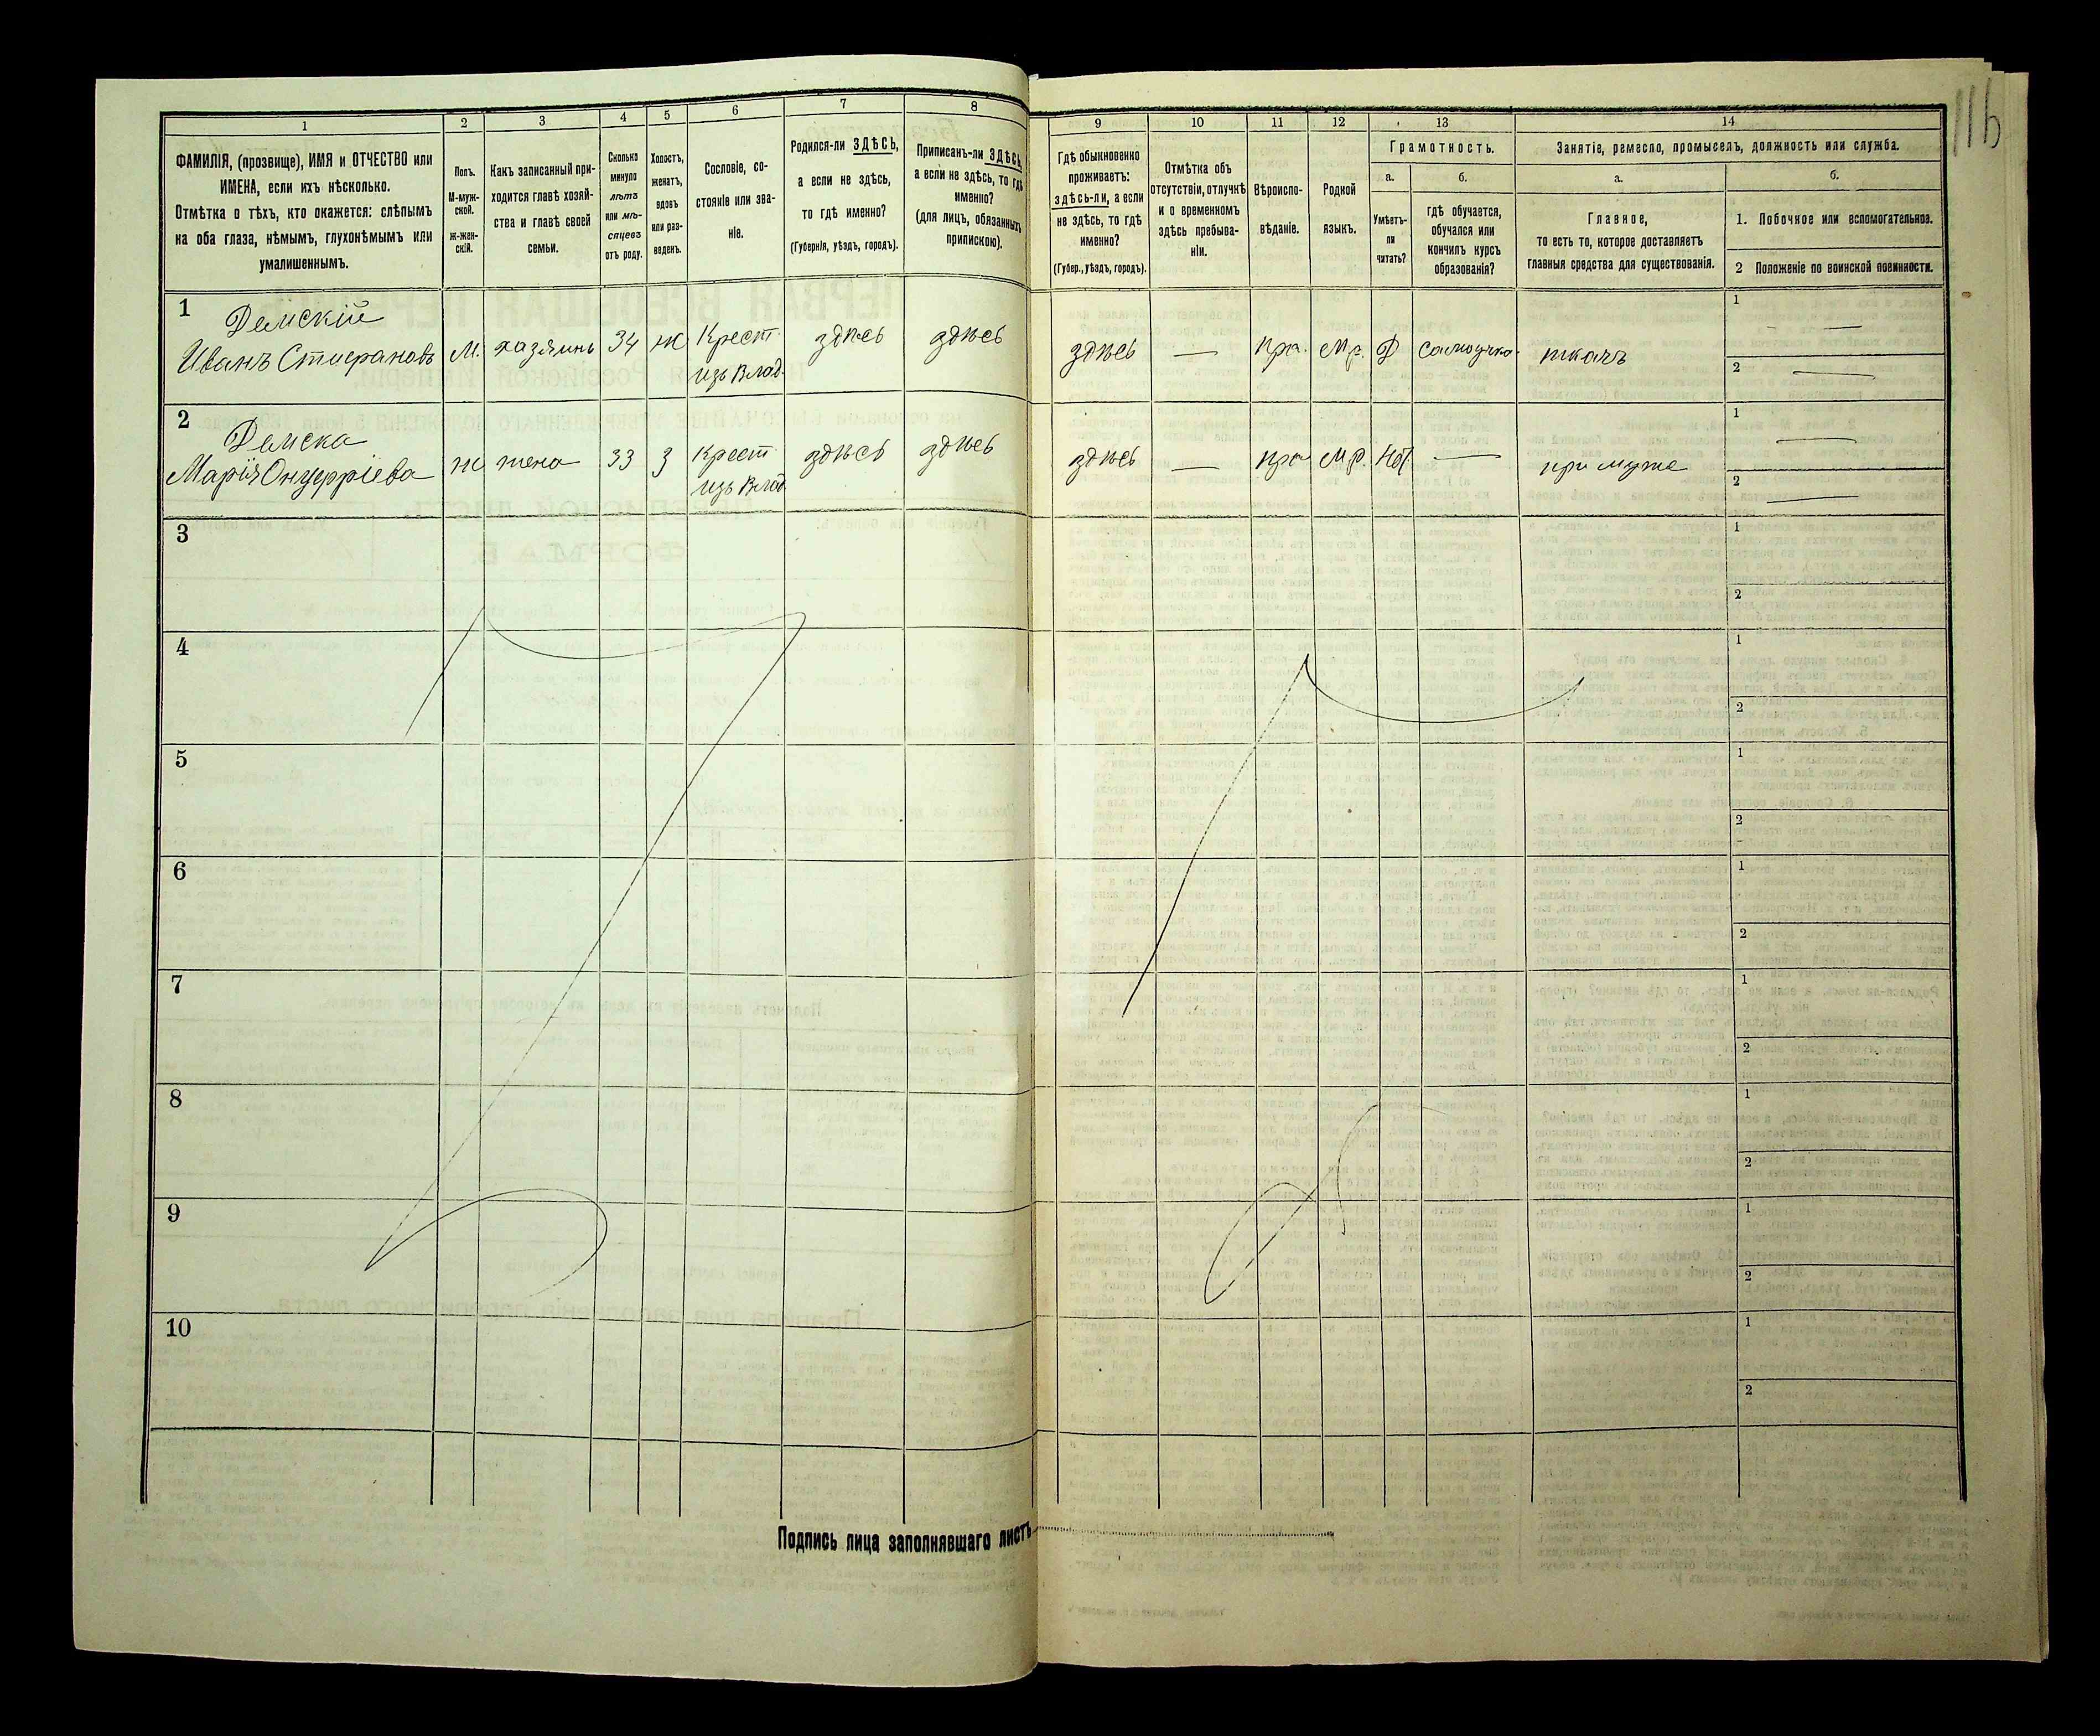 116
1 2 3 4 5 6 7 8 9 10 11 12 13 14
ФАМИЛІЯ, (прозвище), ИМЯ и ОТЧЕСТВО или
ИМЕНА, если ихъ нѣсколько.
Отмѣтка о тѣхъ, кто окажется: слѣпымъ
на оба глаза, нѣмымъ, глухонѣмымъ или
умалишеннымъ.
Полъ.
М-муж-
ской.
Ж-жен-
скій.
Какъ записанный при-
ходится главѣ хозяй-
ства и главѣ своей
семьи.
Сколько
минуло
лѣтъ
или мѣ-
сяцевъ
отъ роду.
Холостъ,
женатъ,
вдовъ
или раз-
веденъ.
Сословіе, со-
стояніе или зва-
ніе.
Родился-ли ЗДѢСЬ,
а если не здѣсь,
то гдѣ именно?
(Губернія, уѣздъ, городъ).
Приписанъ-ли ЗДѢСЬ,
а если не здѣсь, то гдѣ
именно?
(для лицъ, обязанныхъ
припискою).
Гдѣ обыкновенно
проживаетъ:
здѣсь-ли, а если
не здѣсь, то гдѣ
именно?
(Губер., уѣздъ, городъ).
Отмѣтка объ
отсутствіи, отлучкѣ
и о временномъ
здѣсь пребыва-
ніи.
Вѣроиспо-
вѣданіе.
Родной
языкъ.
Грамотность.
а.
Умѣетъ-
ли
читать?
б.
гдѣ обучается,
обучался или
кончилъ курсъ
образованія?
Занятіе, ремесло, промыселъ, должность или служба.
а.
Главное,
то есть то, которое доставляетъ
главныя средства для существованія.
б.
1. Побочное или вспомогательное.
2 Положеніе по воинской повинности.
1
Демскій
Иванъ Стифановъ М. хазяинъ 34 ж Крест. здѣсь здѣсь здѣсь — пра. мр. Д самоучка ткачъ 1 —
изъ Влад. 2 —
2
Демска
Марія Онуфріева ж жена 33 З Крест здѣсь здѣсь здѣсь — пра мр. Нѣт — при муже 1 —
изъ Влад 2 —
3 1
2
4 1
2
5 1
2
6 1
2
7 1
2
8 1
2
9 1
2
10 1
2
Подпись лица заполнявшаго листъ